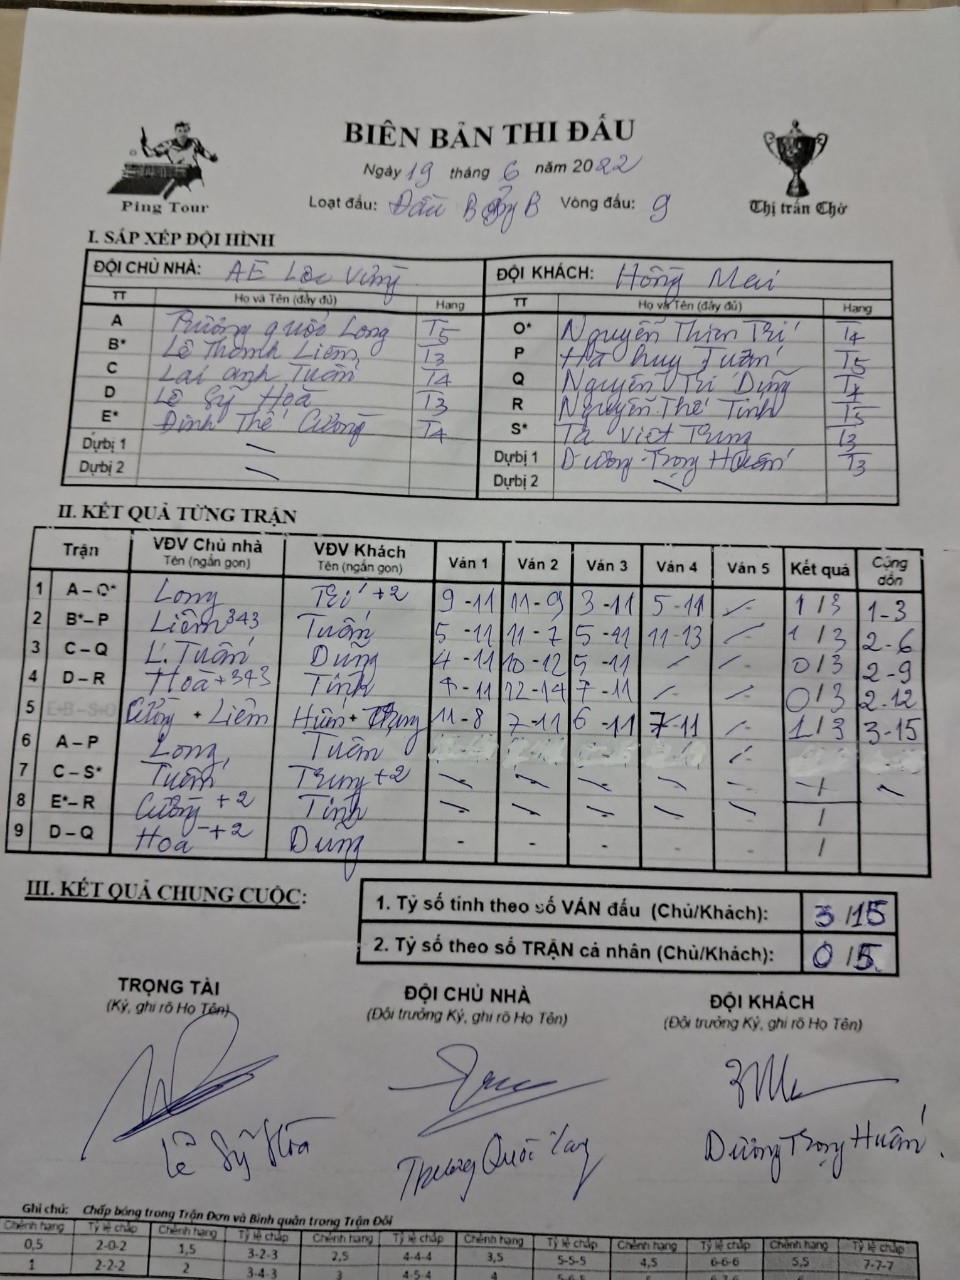 BIÊN BẢN THI ĐẤU
Ping Tour
Thị trấn Chờ
Ngày 19 tháng 6 năm 2022
Loạt đấu: Đấu B Vòng đấu: 9
I. SẮP XẾP ĐỘI HÌNH
ĐỘI CHỦ NHÀ: AE Lộc Vừng ĐỘI KHÁCH: Hồng Mai
TT Họ và Tên (đầy đủ) Hạng TT Họ và Tên (đầy đủ) Hạng
A Trương Quốc Long T5 O* Nguyễn Thiện Trí T4
B* Lê Thành Liêm T3 P Hà Huy Tuấn T5
C Lại Anh Tuấn T4 Q Nguyễn Trí Dũng
D Lê Sỹ Hoà T3 R Nguyễn Thế Tính T5
E* Đinh Thế Cường T4 S* Tạ Việt Trung T3
Dự bị 1 Dự bị 1 Dương Trọng Huấn T3
Dự bị 2 Dự bị 2
II. KẾT QUẢ TỪNG TRẬN
Trận VĐV Chủ nhà Tên (ngắn gọn) VĐV Khách Tên (ngắn gọn) Ván 1 Ván 2 Ván 3 Ván 4 Ván 5 Kết quả Cộng dồn
1 A – O* Long Trí +2 9-11 11-9 3-11 5-11 1/3 1-3
2 B* – P Liêm 343 Tuấn 5-11 11-7 5-11 11-13 1/3 2-6
3 C – Q L. Tuấn Dũng 4-11 10-12 5-11 0/3 2-9
4 D – R Hoà +343 Tính 12-14 7-11 0/3 2-12
5 E+B – S+O Cường + Liêm Huấn + Trung 11-8 7-11 6-11 7-11 1/3 3-15
6 A – P Long Tuấn
7 C – S* Tuấn Trung +2 /
8 E* – R Cường +2 Tính /
9 D – Q Hoà +2 Dũng - - - - - /
III. KẾT QUẢ CHUNG CUỘC:
1. Tỷ số tính theo số VÁN đấu (Chủ/Khách): 3/15
2. Tỷ số theo số TRẬN cá nhân (Chủ/Khách): 0/5
TRỌNG TÀI ĐỘI CHỦ NHÀ ĐỘI KHÁCH
(Ký, ghi rõ Họ Tên) (Đội trưởng Ký, ghi rõ Họ Tên) (Đội trưởng Ký, ghi rõ Họ Tên)
Lê Sỹ Hoà Trương Quốc Long Dương Trọng Huấn
Ghi chú: Chấp bóng trong Trận Đơn và Bình quân trong Trận Đôi
Chênh hạng Tỷ lệ chấp Chênh hạng Tỷ lệ chấp Chênh hạng Tỷ lệ chấp Chênh hạng Tỷ lệ chấp Chênh hạng Tỷ lệ chấp Chênh hạng Tỷ lệ chấp
0,5 2-0-2 1,5 3-2-3 2,5 4-4-4 3,5 5-5-5 4,5 6-6-6 5,5 7-7-7
1 2-2-2 2 3-4-3 3 4-5-4 4